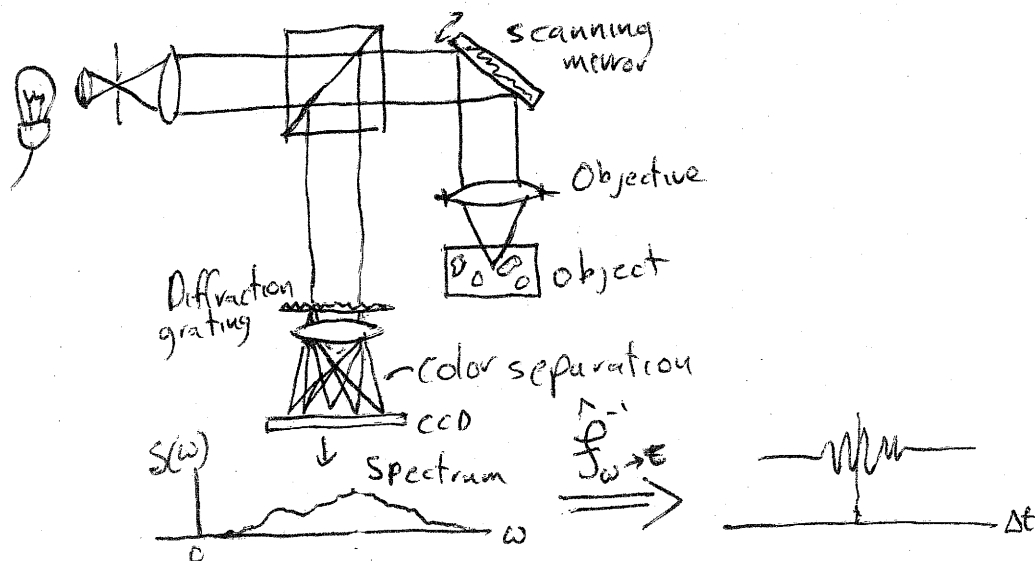 scanning
mirror
Objective
object
Diffraction
grating
color separation
CCD
S(ω)
spectrum
ω
0
Δt